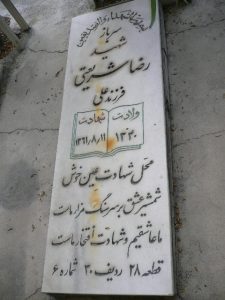 سرباز
شهید
رضا شریعتی
فرزند علی
ولادت شهادت
۱۳۴۰ ۱۳۶۱,۸,۱۱
محل شهادت عین خوش
شمشیر عشق بر سر سنگ مزار ماست
ما عاشقیم و شهادت افتخار ماست
قطعه ۲۸ ردیف ۳۰ شماره ۶